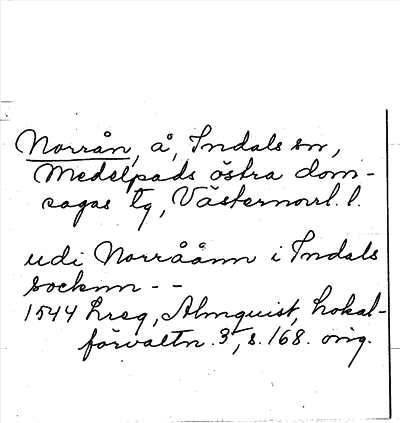 Norrån, å, Indals sn,
Medelpads östra dom-
sagas tg, Västernorrl. l.
udi Norråånn i Indals
socknn - -
1544 hreg, Almquist, Lokal-
förvaltn. 3, s. 168. orig.